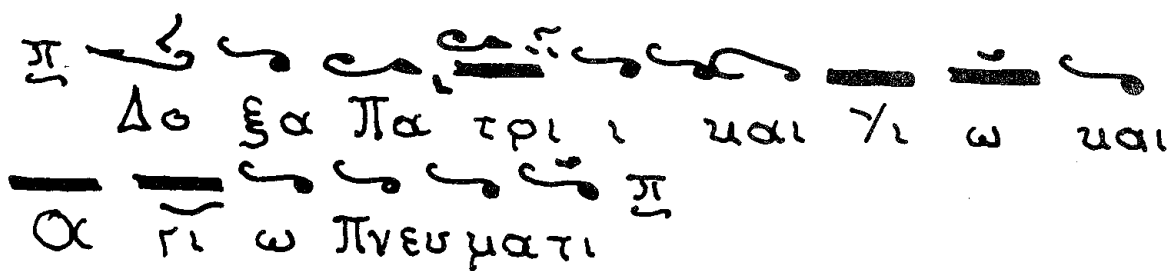 π Δο ξα Πα τρι ι και Υι ω και π
α γι ω Πνευματι